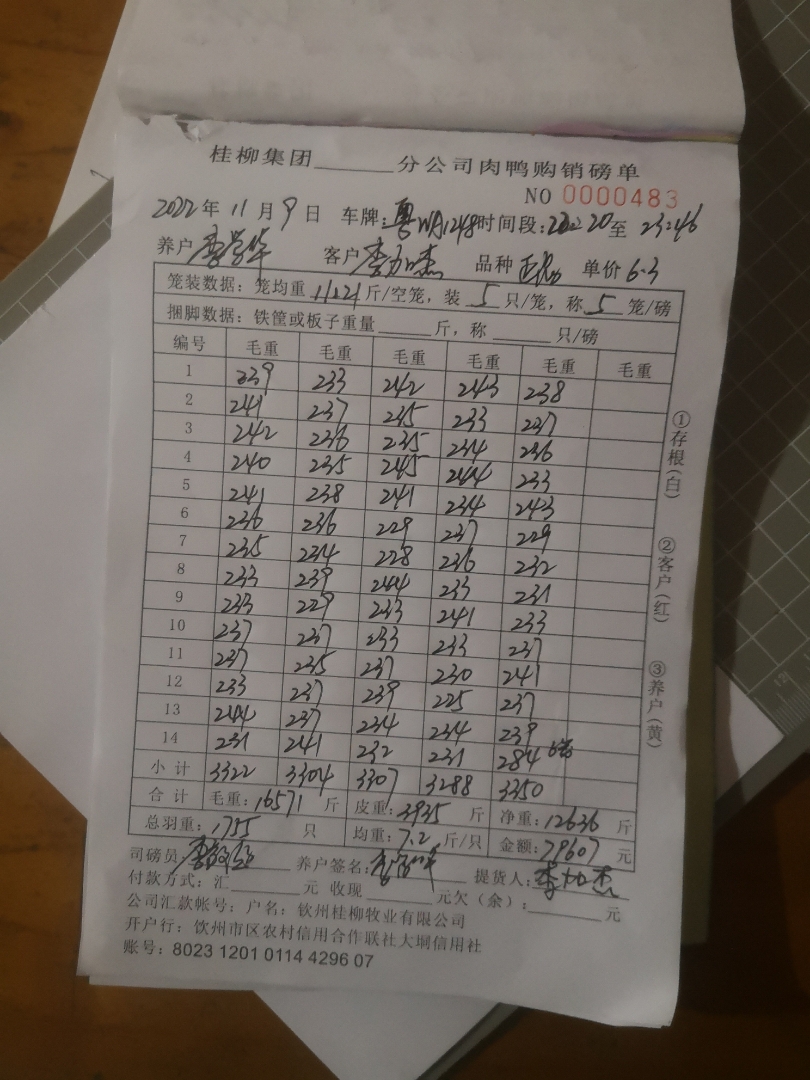 桂柳集团______分公司肉鸭购销磅单
NO 0000483
2022年11月9日 车牌:粤WA1248 时间段:22:20至23:46
养户 客户李加杰 品种 单价6.3
笼装数据: 笼均重11.21斤/空笼, 装5只/笼, 称5笼/磅
捆脚数据: 铁筐或板子重量______斤, 称______只/磅
编号 毛重 毛重 毛重 毛重 毛重 毛重
1 239 233 242 243 238
2 241 237 235 233 237
3 242 236 235 234 236
4 240 235 245 244 233
5 241 238 241 234 243
6 236 236 229 237 229
7 235 234 228 236 232
8 233 239 244 233 231
9 233 229 233 241 233
10 237 237 233 233 237
11 237 235 237 230 241
12 233 237 239 225 237
13 244 237 234 234 239
14 231 241 232 231 284 6笼
小计 3322 3304 3307 3288 3350
合计 毛重:16571斤 皮重:3935斤 净重:12636斤
总羽重:1755只 均重:7.2斤/只 金额:79607元
司磅员: 养户签名: 提货人:李加杰
付款方式: 汇______元 收现______元欠(余):______元
公司汇款帐号: 户名: 钦州桂柳牧业有限公司
开户行: 钦州市区农村信用合作联社大垌信用社
账号: 8023 1201 0114 4296 07
①存根(白)
②客户(红)
③养户(黄)